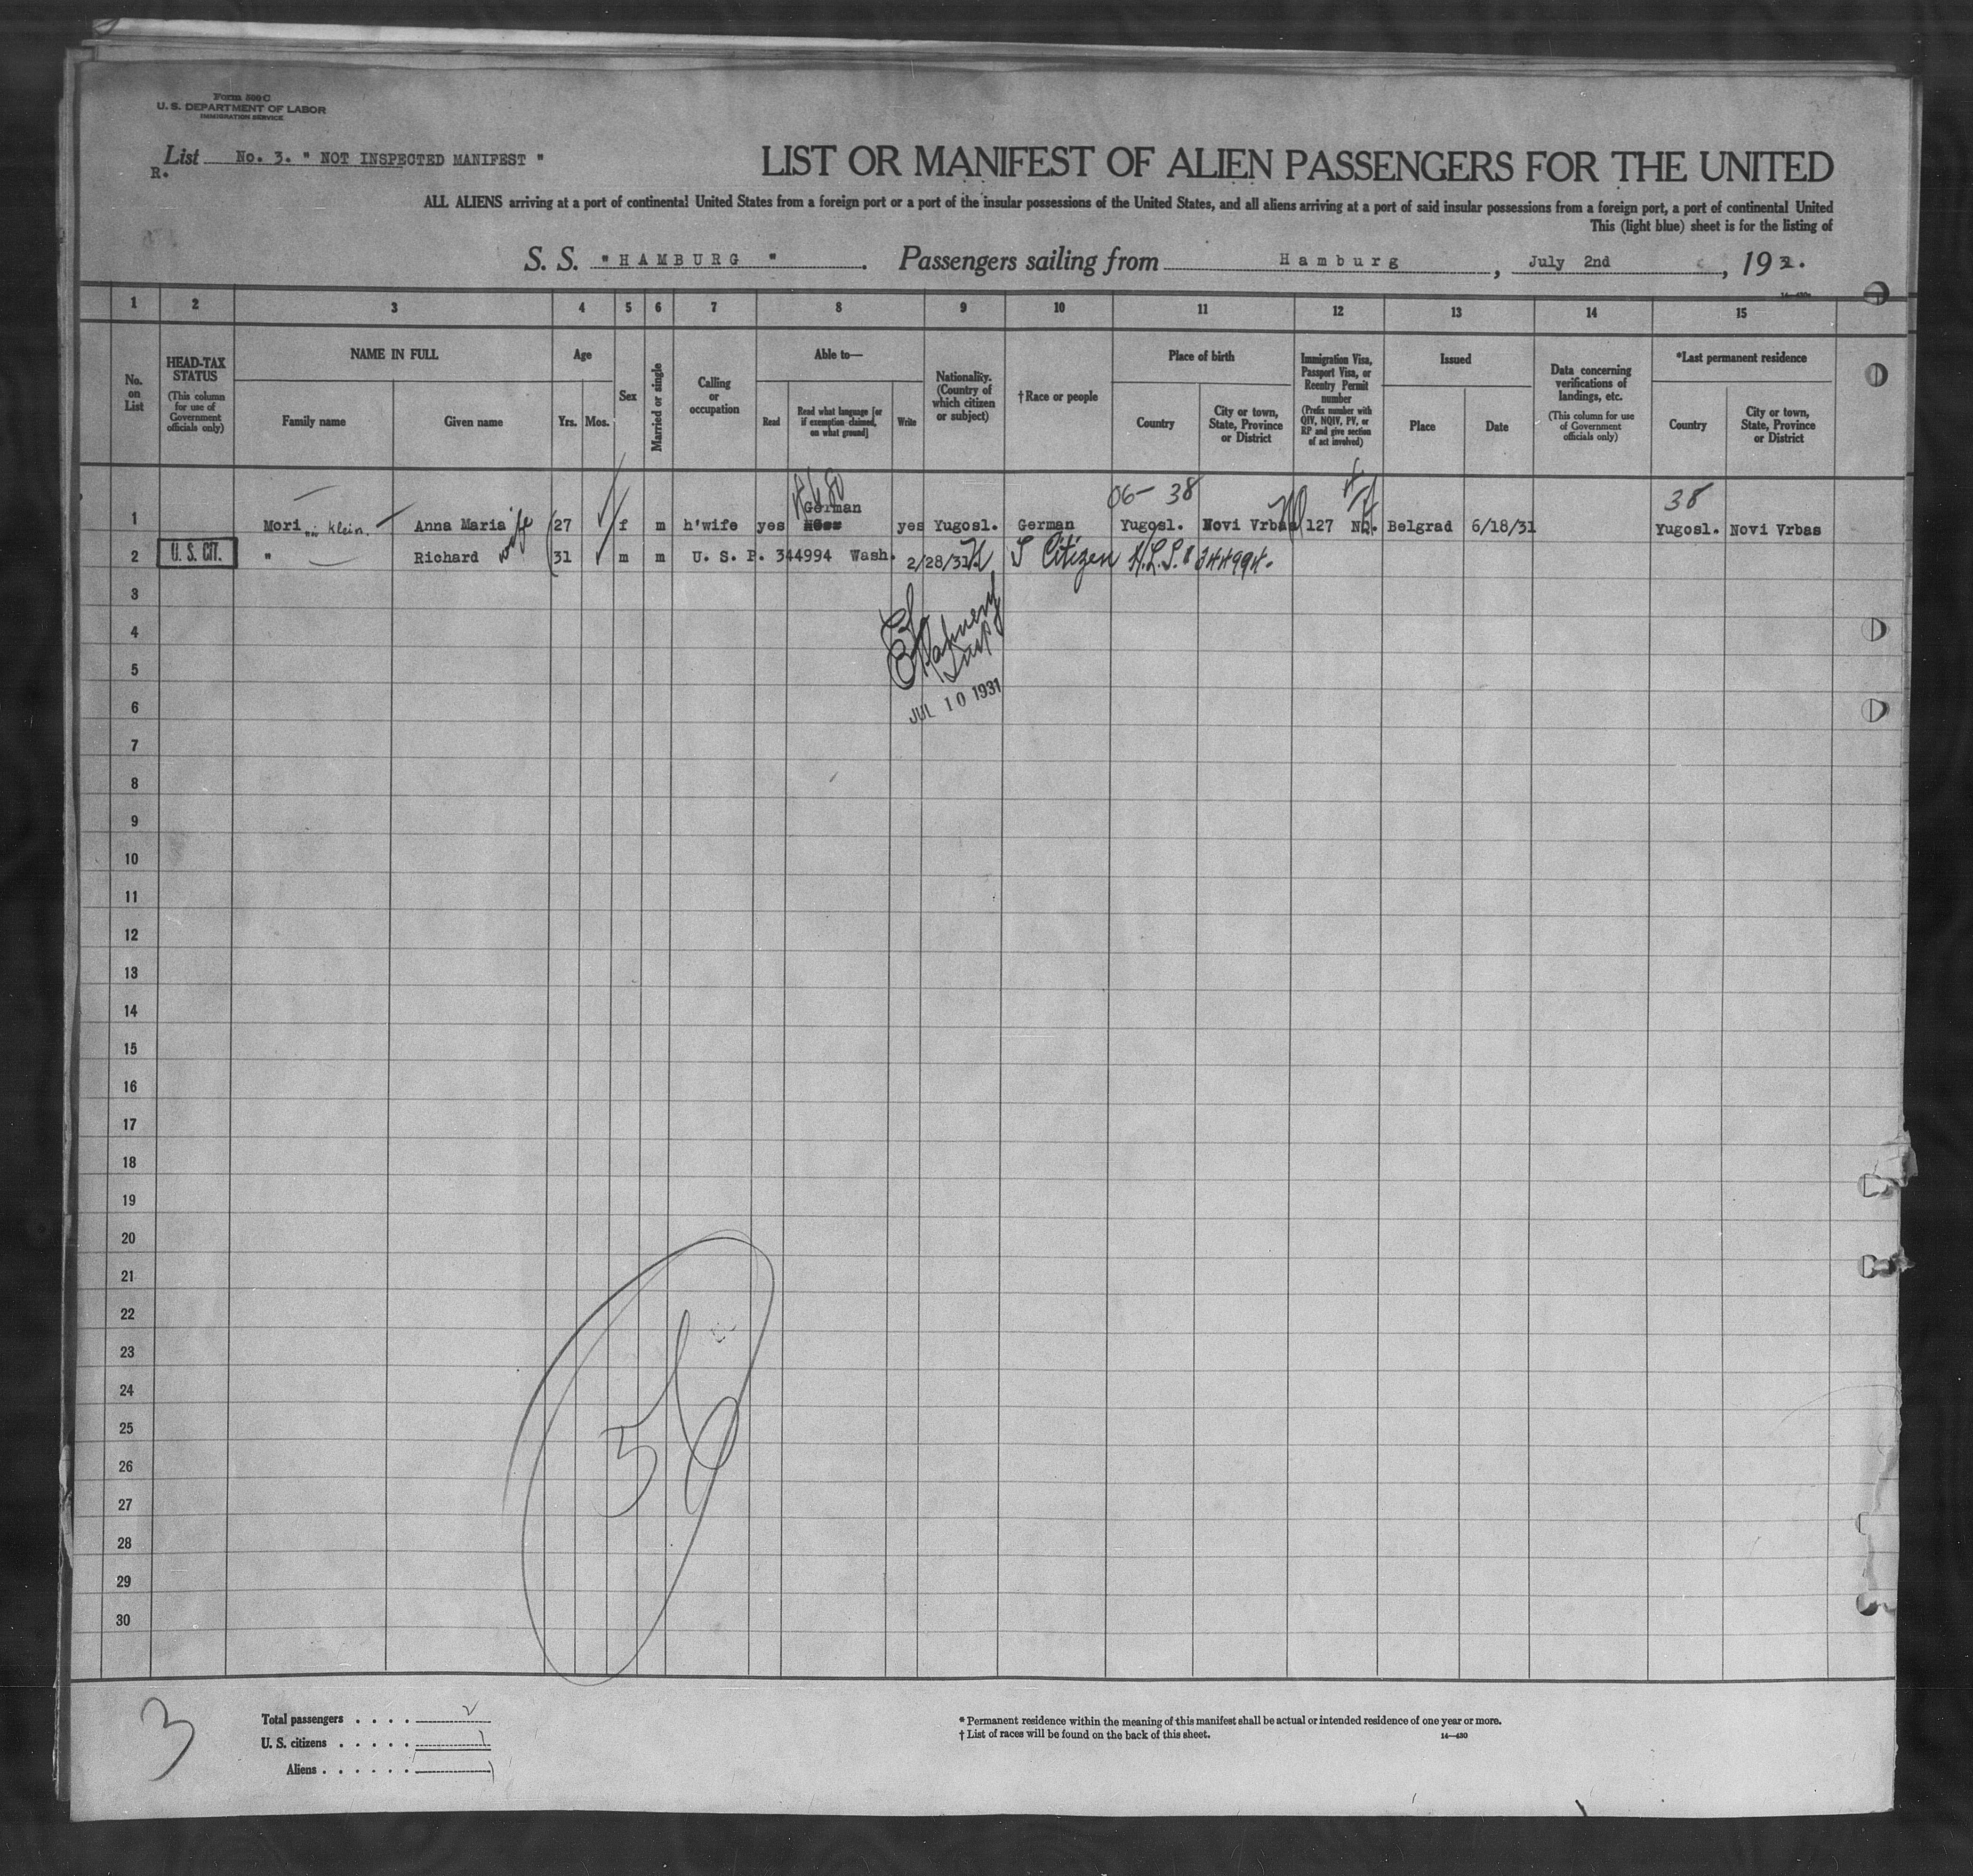 Form 500 C
U. S. DEPARTMENT OF LABOR
IMMIGRATION SERVICE
List No. 3. " NOT INSPECTED MANIFEST "
R.
LIST OR MANIFEST OF ALIEN PASSENGERS FOR THE UNITED
ALL ALIENS arriving at a port of continental United States from a foreign port or a port of the insular possessions of the United States, and all aliens arriving at a port of said insular possessions from a foreign port, a port of continental United
This (light blue) sheet is for the listing of
S. S. "HAMBURG " . Passengers sailing from Hamburg , July 2nd , 19
14—430a
1 2 3 4 5 6 7 8 9 10 11 12 13 14 15
No. on List
HEAD-TAX STATUS
(This column for use of Government officials only)
NAME IN FULL
Family name Given name
Age
Yrs. Mos.
Sex
Married or single
Calling or occupation
Able to—
Read Read what language [or if exemption claimed, on what ground] Write
Nationality. (Country of which citizen or subject)
† Race or people
Place of birth
Country City or town, State, Province or District
Immigration Visa, Passport Visa, or Reentry Permit number
(Prefix number with QIV, NQIV, PV, or RP and give section of act involved)
Issued
Place Date
Data concerning verifications of landings, etc.
(This column for use of Government officials only)
*Last permanent residence
Country City or town, State, Province or District
06- 38 38
German
1 Mori Klein. Anna Maria wife 27 f m h'wife yes yes Yugosl. German Yugosl. Novi Vrbas 127 Belgrad 6/18/31 Yugosl. Novi Vrbas
2 U. S. CIT. " Richard 31 m m U. S. P. 344994 Wash. 2/28/31 U S Citizen 344994.
3
4
5
Insp
6
JUL 10 1931
7
8
9
10
11
12
13
14
15
16
17
18
19
20
21
22
23
24
25
26
27
28
29
30
56
3
Total passengers . . . . 2
U. S. citizens . . . . . 1
Aliens . . . . . . 1
* Permanent residence within the meaning of this manifest shall be actual or intended residence of one year or more.
† List of races will be found on the back of this sheet.
14—430